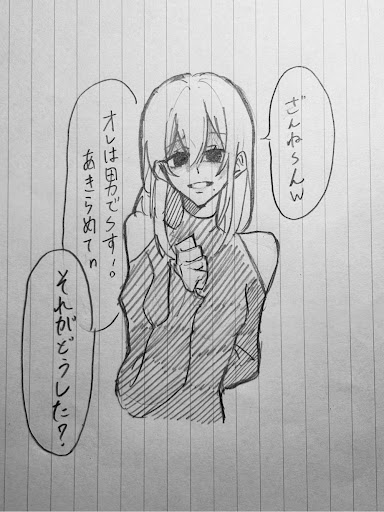 ざんね〜んw
オレは男でーす！。
あきらめてn
それがどうした？